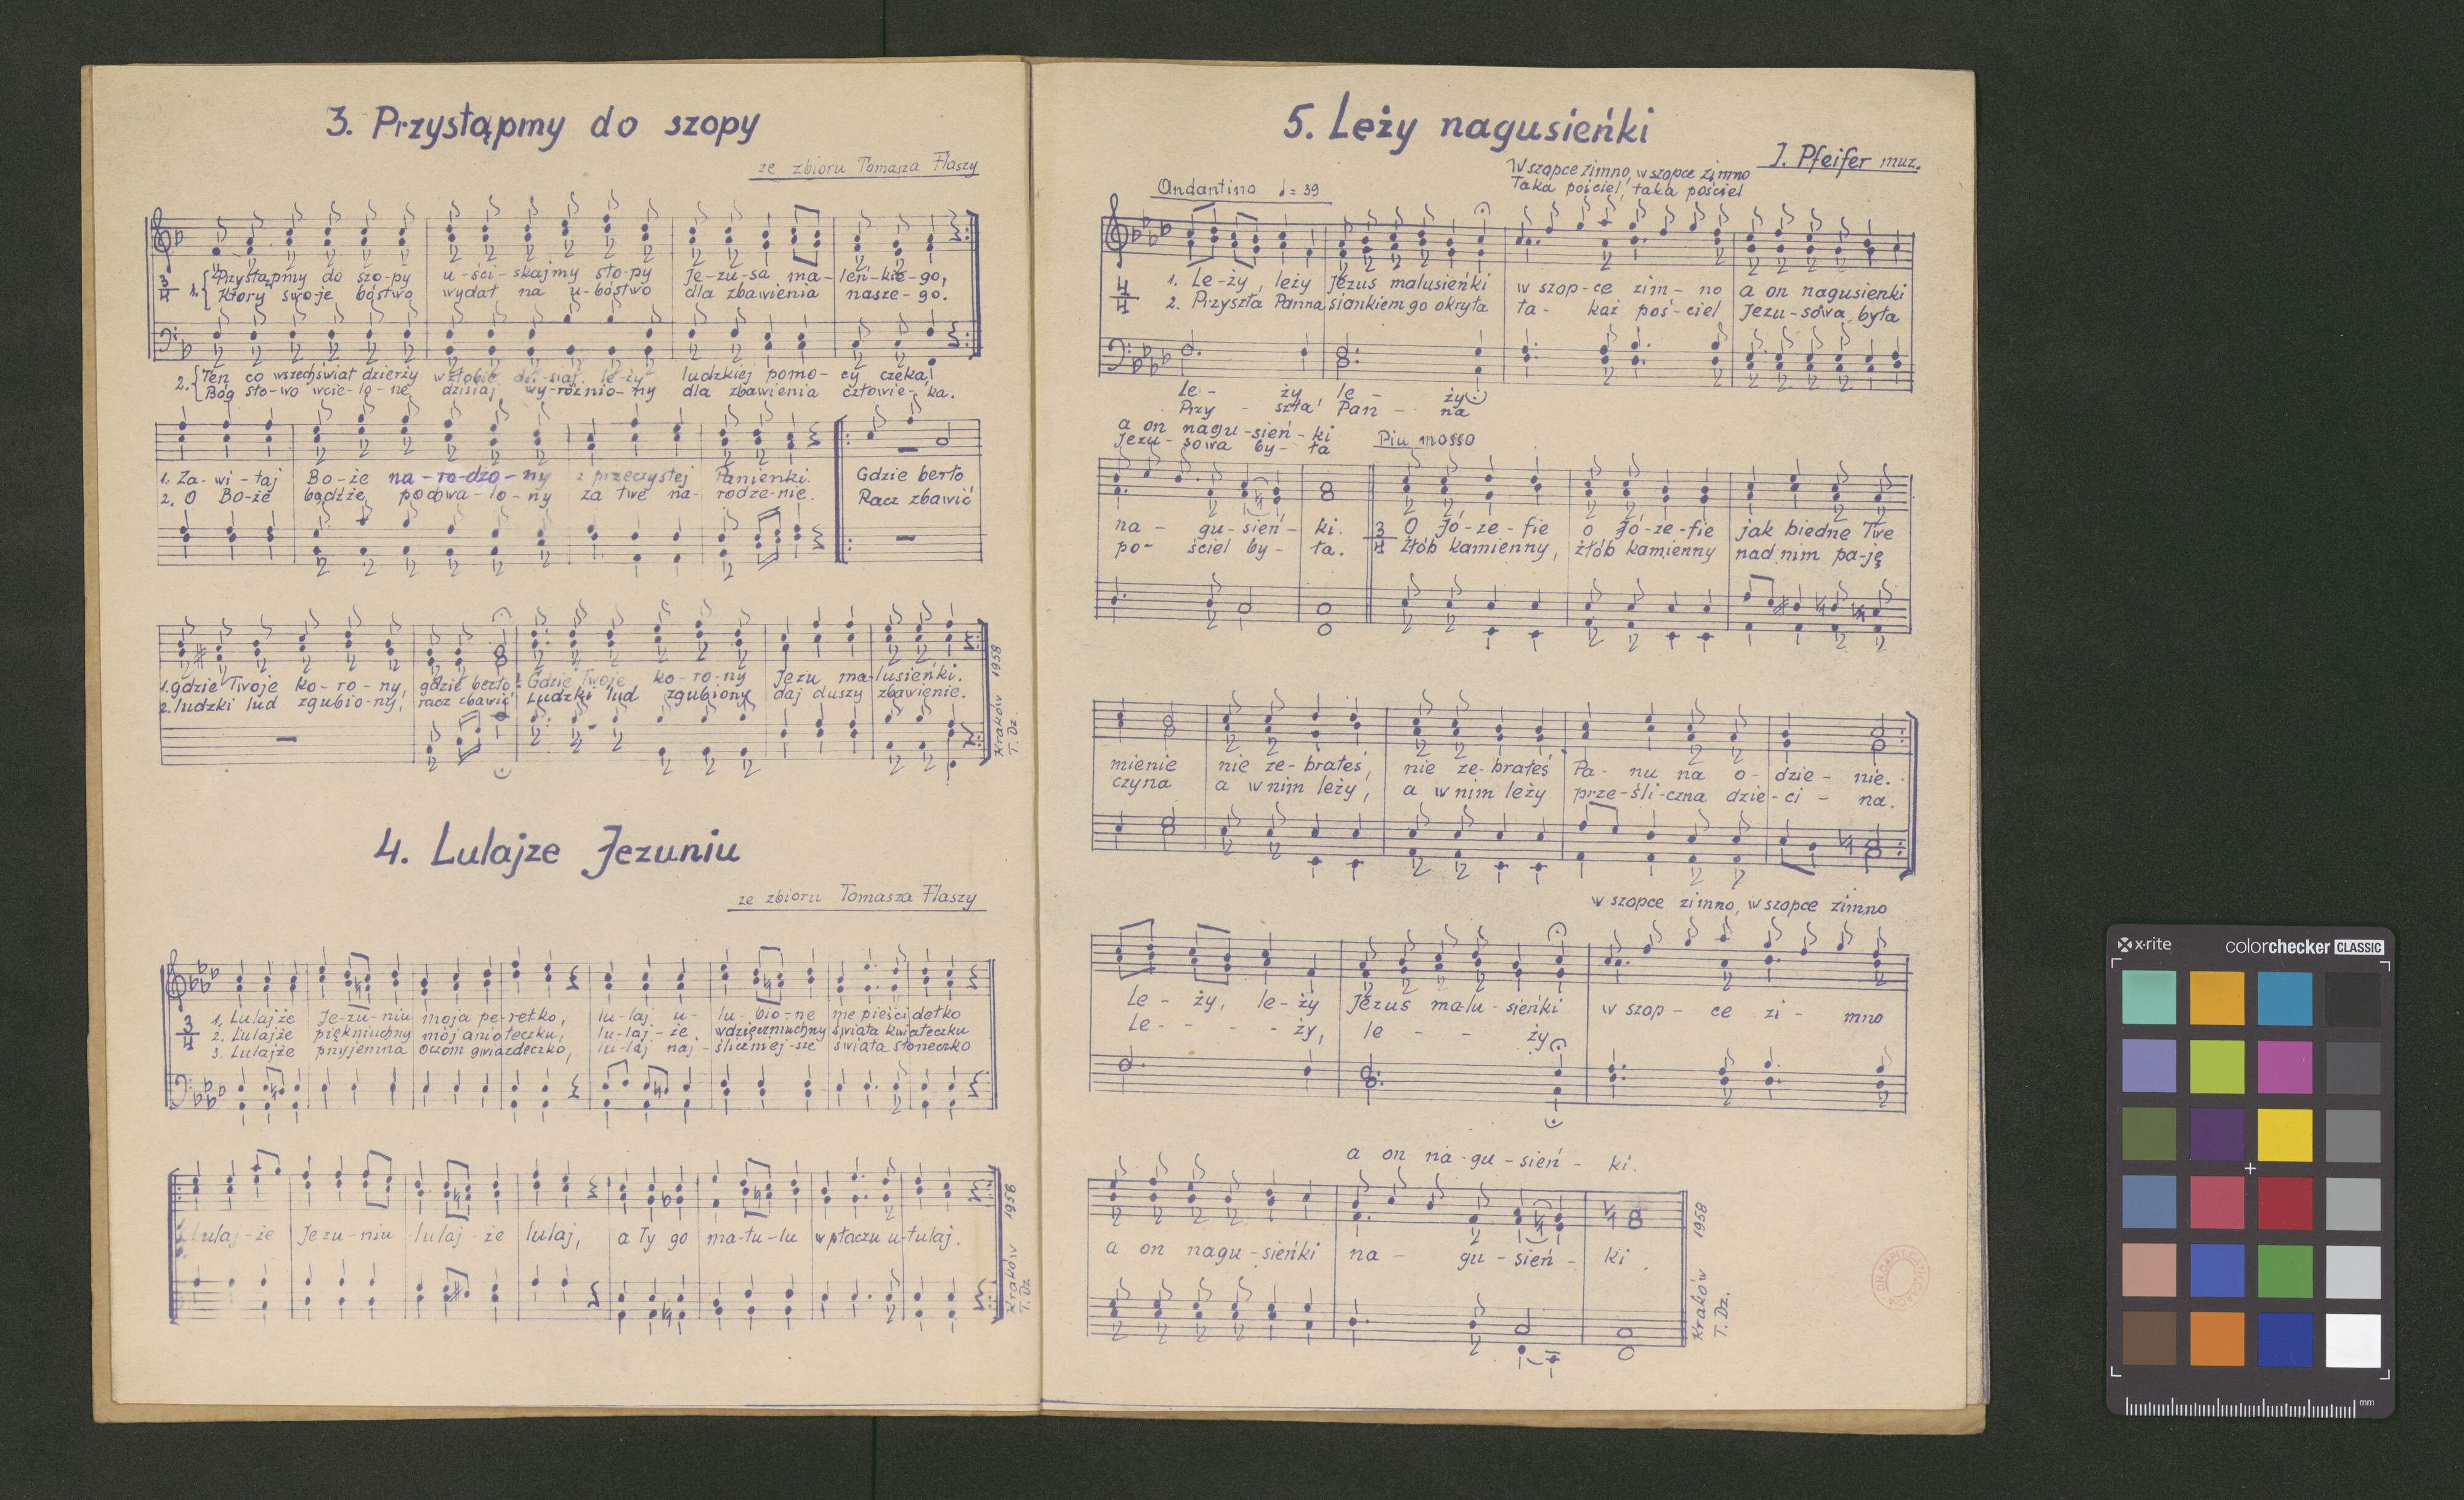 3. Przystąpmy do szopy
ze zbioru Tomasza Flaszy
1. Przystąpmy do szo-py u-ści-skajmy sto-py Je-zu-sa ma-leń-kie-go,
Który swoje bóstwo wydał na u-bóstwo dla zbawienia nasze-go.
3/4
2. Ten co wszechświat dzierży w żłobie dzi-siaj le-ży ludzkiej pomo-cy czeka,
Bóg sło-wo wcie-lo-ne dzisiaj wy-róż nio-ny dla zbawienia człowie-ka.
1. Za-wi-taj Bo-że na-ro-dzo-ny z przeczystej Panienki. Gdzie berło
2. O Bo-że bądźże pochwa-lo-ny za twe na-rodze-nie. Racz zbawić
1. gdzie Twoje ko-ro-ny, gdzie berło Gdzie Twoje ko-ro-ny Jezu ma-lusieńki.
2. ludzki lud zgubio-ny, racz zbawić Ludzki lud zgubiony daj duszy zbawienie.
Kraków 1958
T. Dz.
4. Lulajze Jezuniu
ze zbioru Tomasza Flaszy
3/4
1. Lulajże Je-zu-niu moja pe-rełko, lu-laj u-lu-bio-ne me pieścidełko
2. Lulajże piękniuchny mój aniołeczku, lu-laj-że wdzięczniuchny świata kwiateczku
3. Lulajże przyjemna oczom gwiazdeczko, lu-laj naj-śliczniej-sze świata słoneczko
Lulaj-że Jezu-niu lulaj-że lulaj, a Ty go ma-tu-lu w płaczu u-tulaj.
Kraków 1958
T. Dz
5. Leży nagusieńki
J. Pfeifer muz.
W szopce zimno, w szopce zimno
Taka pościel, taka pościel
Andantino ♩= 39
4/4
1. Le-ży, leży Jezus malusieńki w szop-ce zim-no a on nagusienki
2. Przyszła Panna siankiem go okryła ta-każ poś-ciel Jezu-sowa była
Le-ży le-ży
Przy-szła Pan-na
a on nagu-sień-ki
Jezu-sowa by-ła
Piu mosso
na-gu-sień-ki. 3/4 O Jó-ze-fie o Jó-ze-fie jak biedne Twe
po-ściel by-ła. Żłób kamienny, żłób kamienny nad nim pa-ję
mienie nie ze-brałeś, nie ze-brałeś Pa-nu na o-dzie-nie.
czyna a w nim leży, a w nim leży prze-śli-czna dzie-ci-na.
w szopce zimno, w szopce zimno
Le-ży, le-ży Jezus ma-lu-sieńki w szop-ce zi-mno
Le---ży, le--ży
a on na-gu-sień-ki.
a on nagu-sieńki na-gu-sień-ki.
Kraków 1958
T. Dz.
x·rite colorchecker CLASSIC
mm